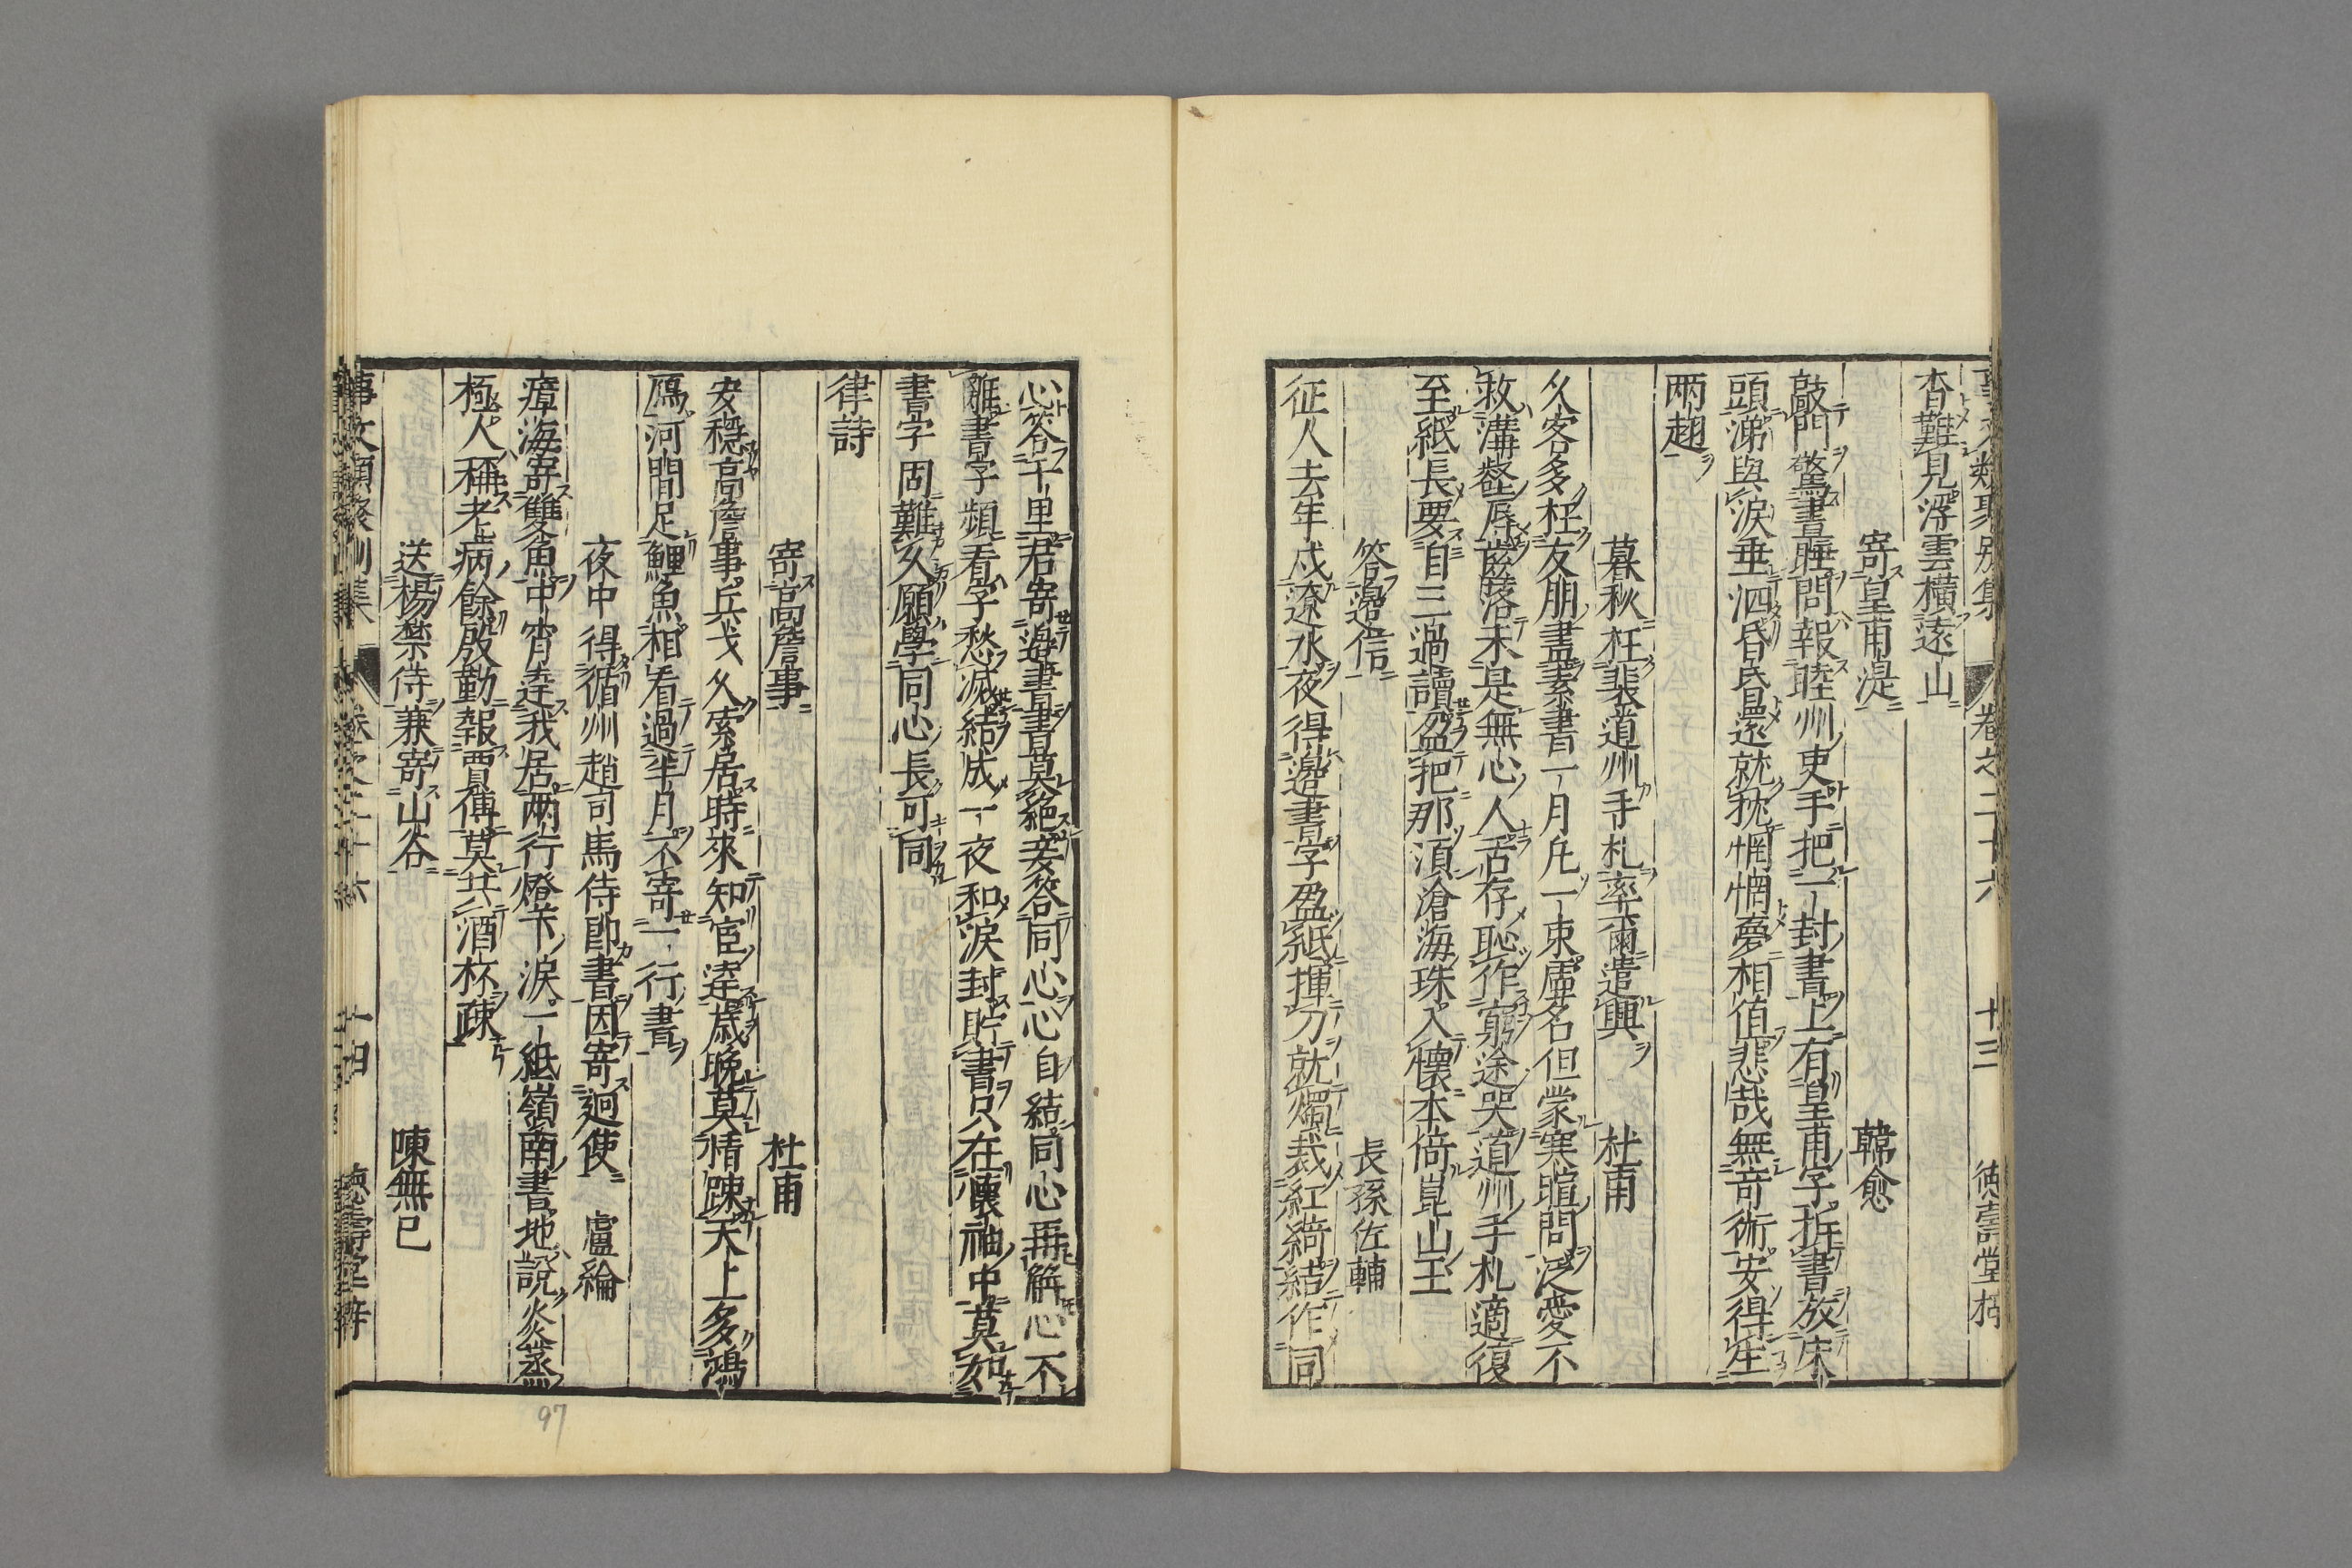 杳難見浮雲橫遠山
寄皇甫湜　韓愈
敲門驚晝睡問報睦州吏手把一封書上有皇甫字拆書放床
頭涕與淚垂泗昏昏還就枕惘惘夢相值悲哉無奇術安得生
兩翅
暮秋枉裴道州手札率爾遣興　杜甫
久客多枉友朋書素書一月凡一束虛名但蒙寒暄問泛愛不
救溝壑辱齒落未是無心人舌存恥作窮途哭道州手札適復
至紙長要自三過讀盈把那須滄海珠入懷本倚崑山玉
答邉信　長孫佐輔
征人去年戍遼水夜得邉書字盈紙揮刀就燭裁紅綺結作同
心答千里君寄邉書書莫絕妾答同心心自結同心再解心不
離書字頻看字愁滅結成一夜和淚封貯書只在懷袖中莫如
書字固難久願學同心長可同
律詩
寄高詹事　杜甫
安穩高詹事兵戈久索居時來知宦達歲晚莫情疎天上多鴻
鴈河間足鯉魚相看過半月不寄一行書
夜中得循州趙司馬侍郎書因寄迴使　盧綸
瘴海寄雙魚中宵達我居兩行燈下淚一紙嶺南書地說炎蒸
極人稱老病餘殷勤報賈傅莫共酒杯疎
送楊禁侍兼寄山谷　陳無已